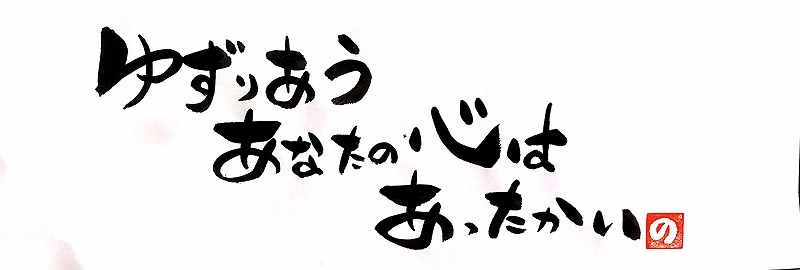 ゆずりあう
あなたの心は
あったかい
の